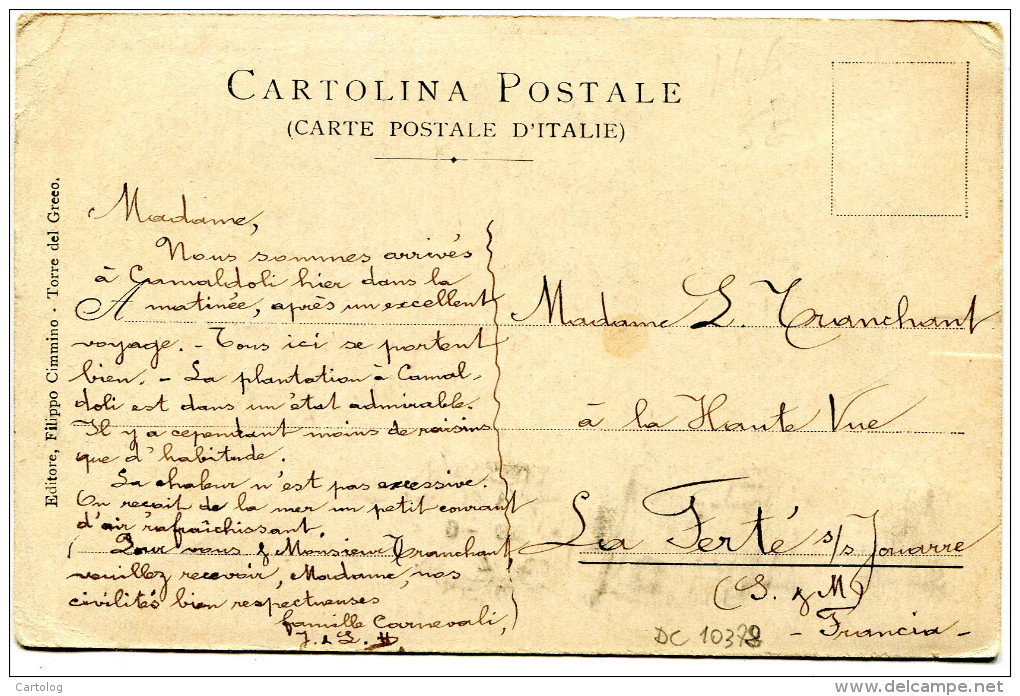 CARTOLINA POSTALE
(CARTE POSTALE D'ITALIE)
Editore, Filippo Cimmino - Torre del Greco.
Madame,
Nous sommes arrivés
à Camaldoli hier dans la
matinée, après un excellent
voyage. - Tous ici se portent
bien. - La plantation à Camal-
doli est dans un état admirable.
Il y a cependant moins de raisins
que d'habitude.
La chaleur n'est pas excessive.
On reçoit de la mer un petit courant
d'air rafraîchissant.
Pour vous & Monsieur Tranchant
veuillez recevoir, Madame, nos
civilités bien respectueuses
famille Carnevali,
J. & L.
Madame L. Tranchant
à la Haute Vue
La Ferté s/s Jouarre
(S. & M)
- Francia -
DC 10378
Cartolog
www.delcampe.net